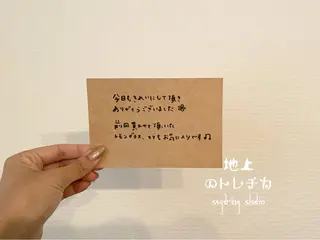 今日もきれいにして頂き
ありがとうございました
前回買わせて頂いた
トモングラス、とてもお気に入りです♫
地上
のトレチカ